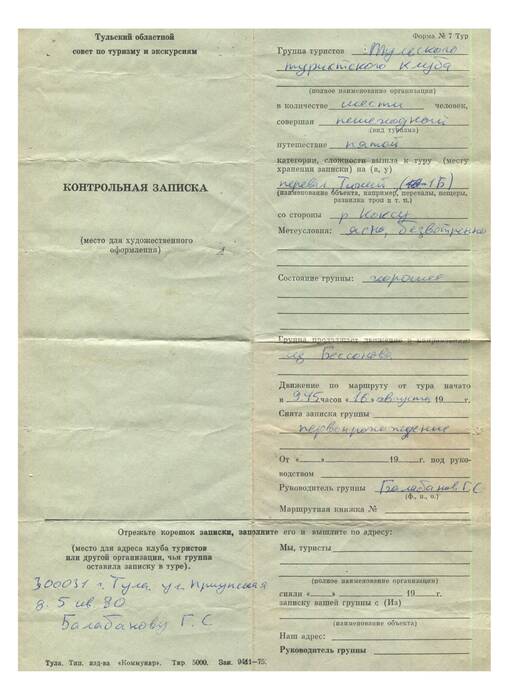 Тульский областной
совет по туризму и экскурсиям
КОНТРОЛЬНАЯ ЗАПИСКА
(место для художественного
оформления)
Форма № 7 Тур
Группа туристов Тульского
туристского клуба
(полное наименование организации)
в количестве шести человек,
совершая пешеходный
(вид туризма)
путешествие пятой
категории, сложности вышла к туру (месту
хранения записки) на (в, у)
перевал (1Б)
(наименование объекта, например, перевалы, пещеры,
развилка троп и т. п.)
со стороны р Коксу
Метеусловия: ясно, безветренно
Состояние группы: хорошее
Группа продолжает движение в направлении
лз Бессонова
Движение по маршруту от тура начато
в 9 45 часов «16» августа 19 г.
Снята записка группы
первопрохождение
От « » 19 г. под руко-
водством
Руководитель группы Балабанов Г.С
(ф., и., о.)
Маршрутная книжка №
Отрежьте корешок записки, заполните его и вышлите по адресу:
(место для адреса клуба туристов
или другой организации, чья группа
оставила записку в туре).
300031 г. Тула, ул.
д. 5 кв. 90
Балабанову Г. С
Мы, туристы
(полное наименование организации)
сняли 19 г.
записку вашей группы с (Из)
(наименование объекта)
Наш адрес:
Руководитель группы
Тула. Тип. изд-ва «Коммунар». Тир. 5000. Зак. 9411—75.